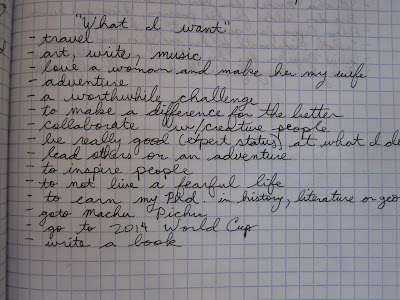 "What I want"
- travel
- art, write, music
- love a woman and make her my wife
- adventure
- a worthwhile challenge
- to make a difference for the better
- collaborate w/ creative people
- be really good (expert status) at what I do
- lead others on an adventure
- to inspire people
- to not live a fearful life
- to earn my Phd. in history, literature or geo
- goto Machu Pichu
- go to 2014 World Cup
- write a book